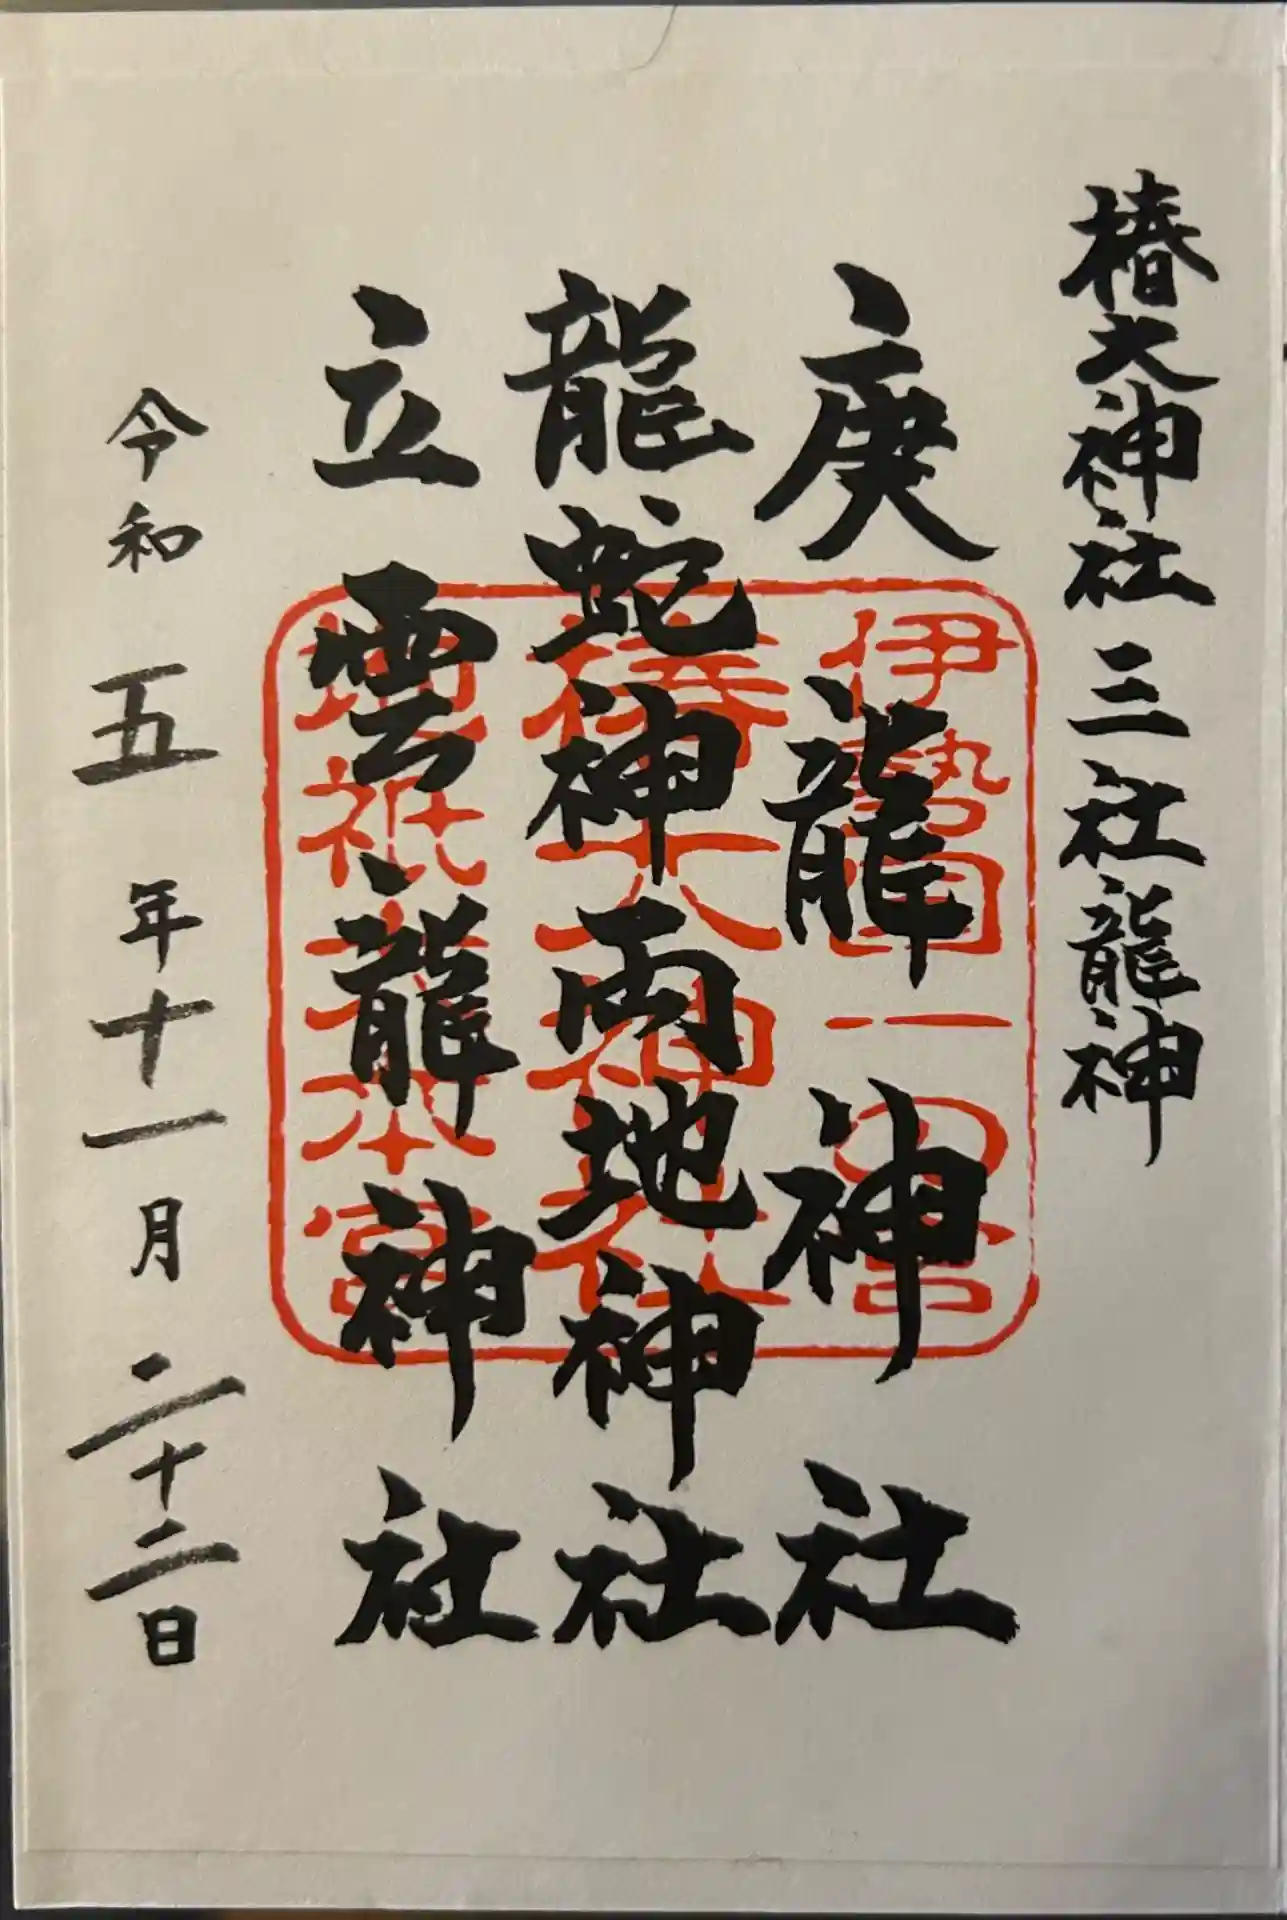 椿大神社三社龍神
庚龍神社
龍蛇神両地神社
立雲龍神社
令和五年十一月二十二日
伊勢国一の宮
椿大神社
地祇大本宮